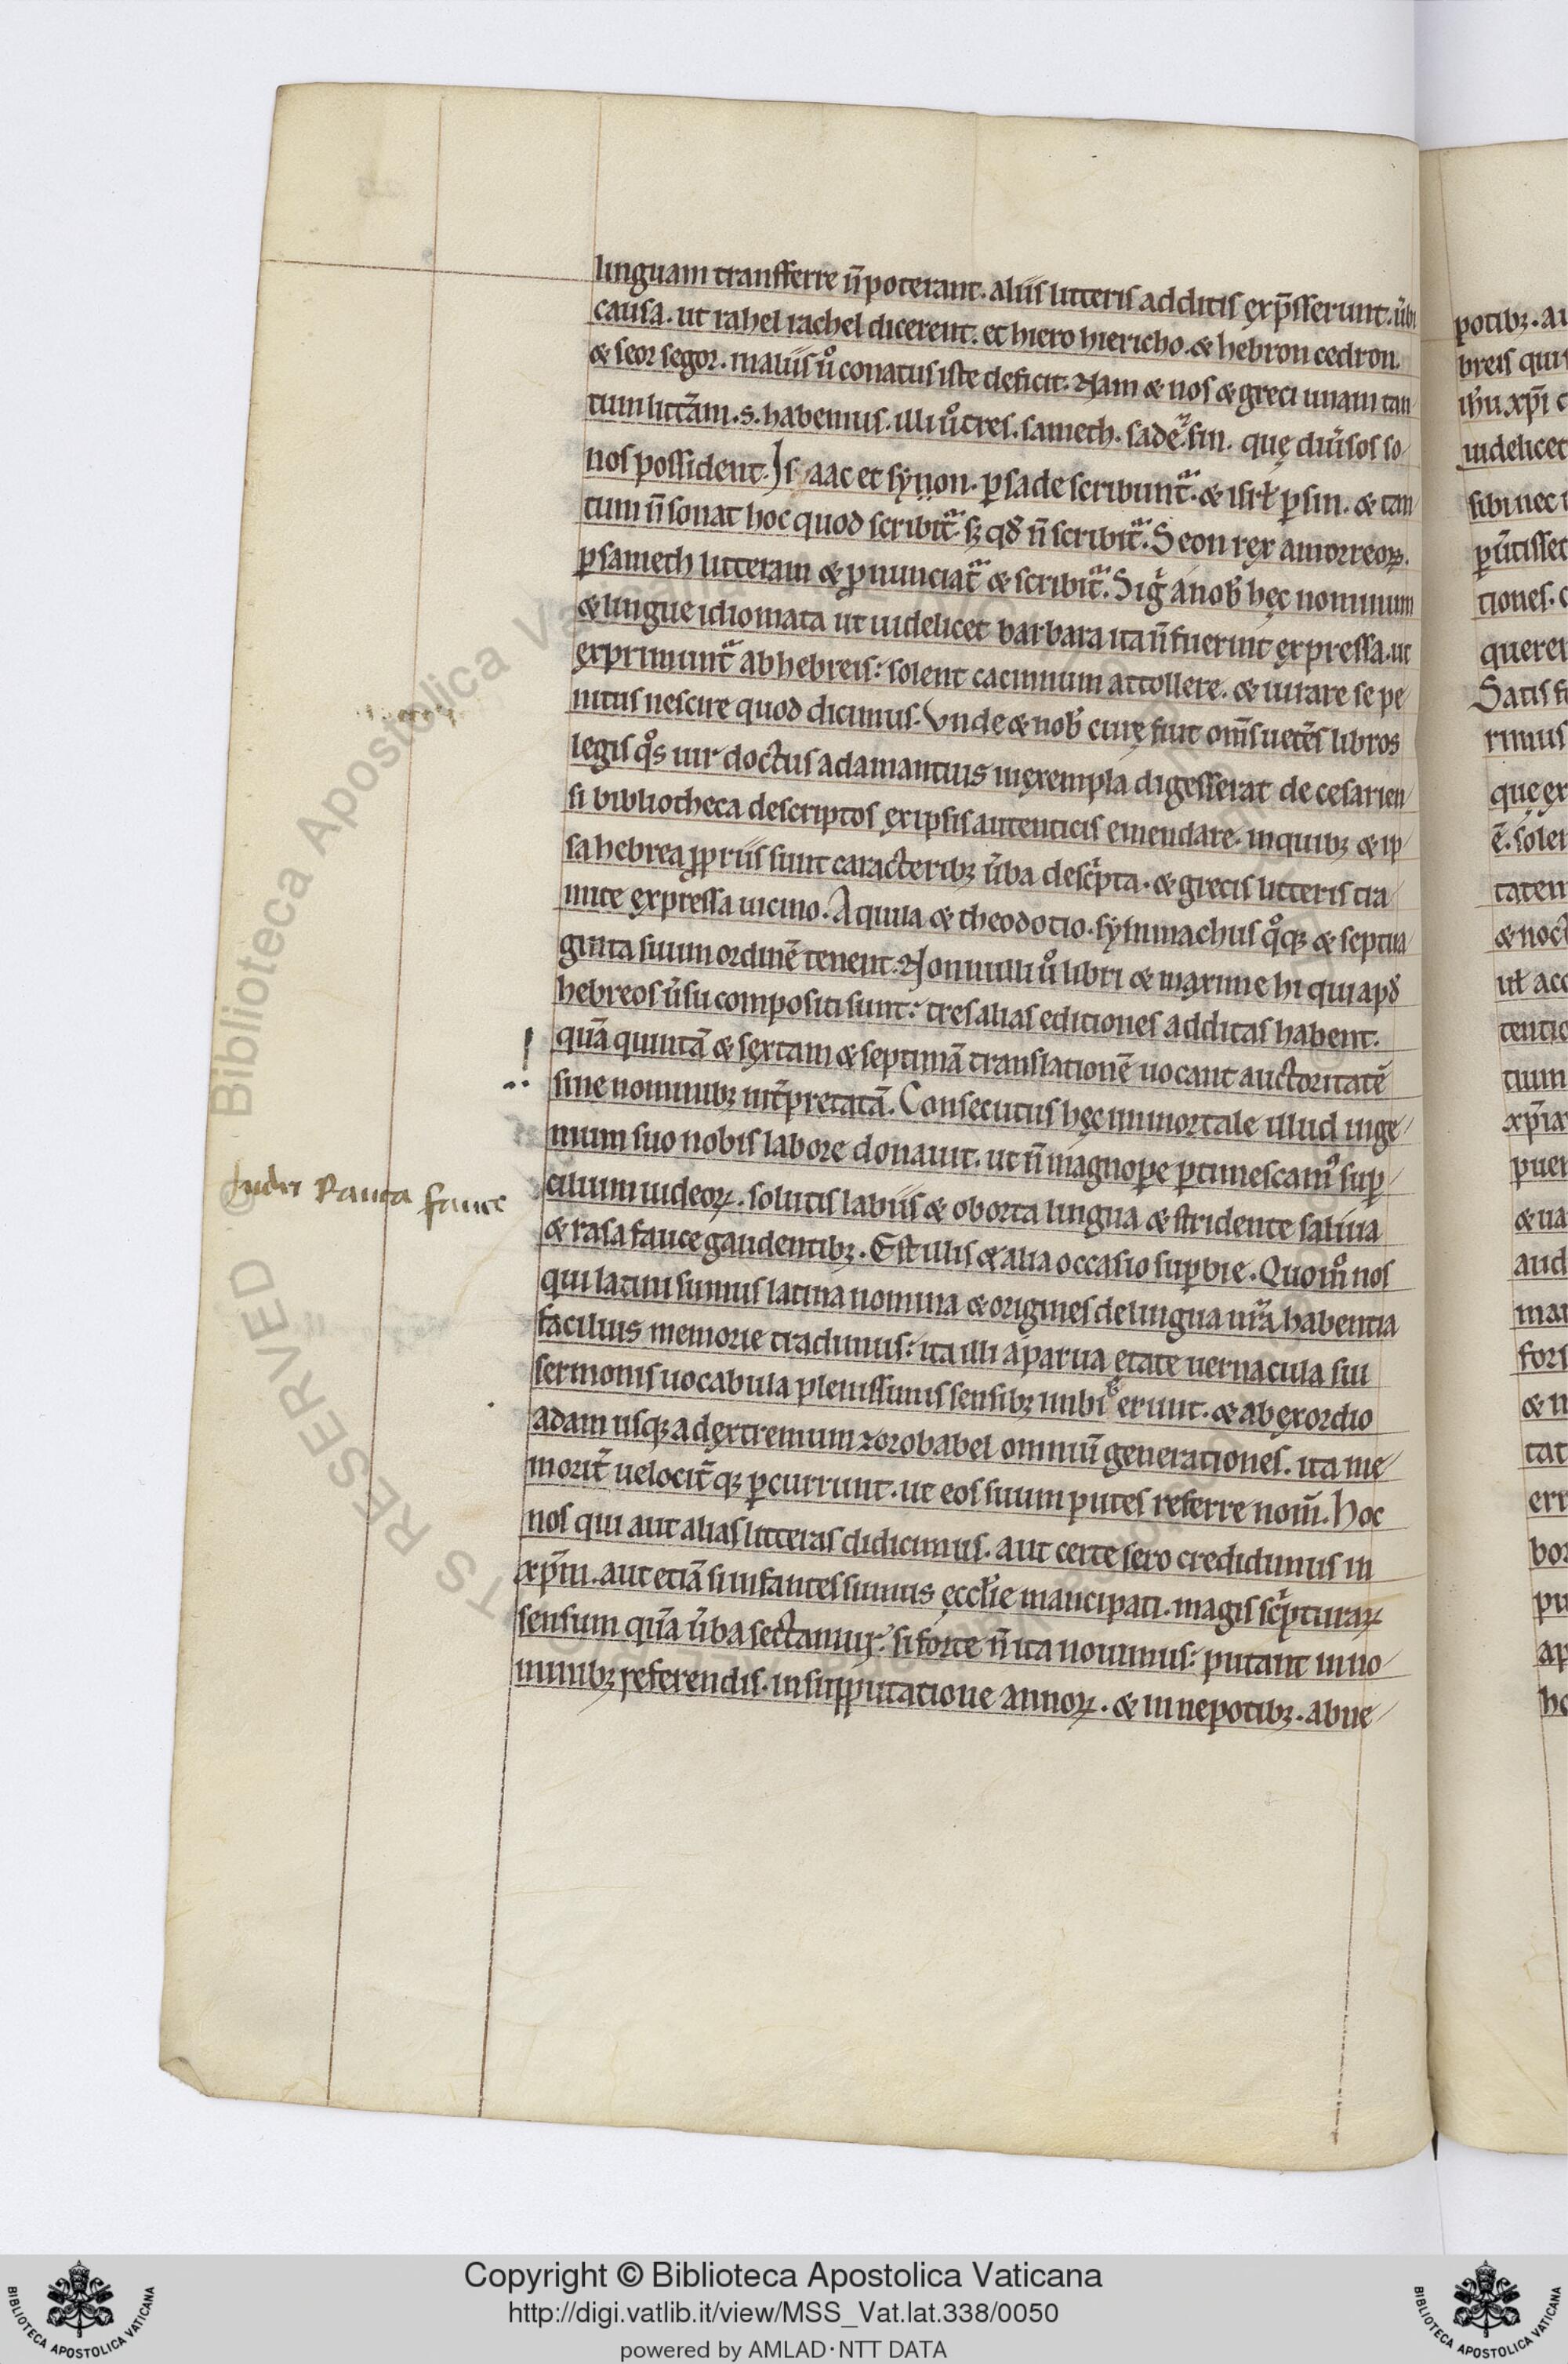 linguam transferre n̄ poterant. aliis litteris additis exp̄sserunt. ūbi
causa. ut rahel rachel dicerent. et hiero hiericho. & hebron cedron.
& seor segor. in aliis ů conatus iste deficit. Nam & nos & greci unam tan
tum litt̄am .s. habemus. illi ů tres. samech. sade. & sin. quę diūsos so
nos possident. Isaac et synon. ꝑ sade scribunt᷑. & isrł ꝑ sin. & tam
tum n̄ sonat hoc quod scribit᷑. sꝫ qđ n̄ scribit᷑. Seon rex amorreoꝝ.
ꝑ samech litteram & ꝓnunciat᷑ & scribit᷑. Sigͥ a nob̄ hęc nominum
& lingue idiomata ut uidelicet barbara ita n̄ fuerint expressa. ut
exprimunt᷑ ab hebreis: solent cacinnum attollere. & iurare se pe
nitus nescire quod dicimus. Unde & nob̄ curę fuit om̄s uet̄es libros
legis qͦs uir doctus adamantius in exempla digesserat de cesarien
si bibliotheca descriptos ex ipsis autenticis emendare. in quibꝫ & ip
sa hebrea ꝓpriis sunt caracteribꝫ ūba desc̓pta. & grecis litteris tra
mite expressa uicino. Aquila & theodotio. symmachus qͦqꝫ & septua
ginta suum ordinē tenent. Nonnulli ů libri & maxime hi qui apđ
hebreos ūsu compositi sunt: tres alias editiones additas habent.
quā quintā & sextam & septimā translationē uocant auctoritatē
sine nominibꝫ int̄pretatā. Consecutus hęc inmortale illud inge
nium suo nobis labore donauit. ut n̄ magnopere ꝑtimescamꝰ suꝑ
cilium iudeoꝝ. solutis labiis & oborta lingua & stridente saliua
Iudei Rauca fauce
& rasa fauce gaudentibꝫ. Est illis & alia occasio suꝑbie. Quoṁ nos
qui latini sumus latina nomina & origines de lingua nr̄a habentia
facilius memorie tradimus: ita illi a parua ętate uernacula sui
sermonis uocabula plenissimis sensibꝫ imbiberunt. & ab exordio
adam usqꝫ ad extremum zorobabel omniū generationes. ita me
morit̄ uelocit̄qꝫ ꝑcurrunt. ut eos suum putes referre nom̄. Hoc
nos qui aut alias litteras didicimus. aut certe sero credidimus in
xp̄m. aut etiā si infantes sumus ęccłie mancipati. magis sc̓pturaꝝ
sensum quā ūba sectamur: si forte n̄ ita nouimus: putant in no
minibꝫ referendis. in supputatione annoꝝ. & in nepotibꝫ. abne
Copyright © Biblioteca Apostolica Vaticana
http://digi.vatlib.it/view/MSS_Vat.lat.338/0050
powered by AMLAD·NTT DATA
BIBLIOTECA APOSTOLICA VATICANA
BIBLIOTECA APOSTOLICA VATICANA